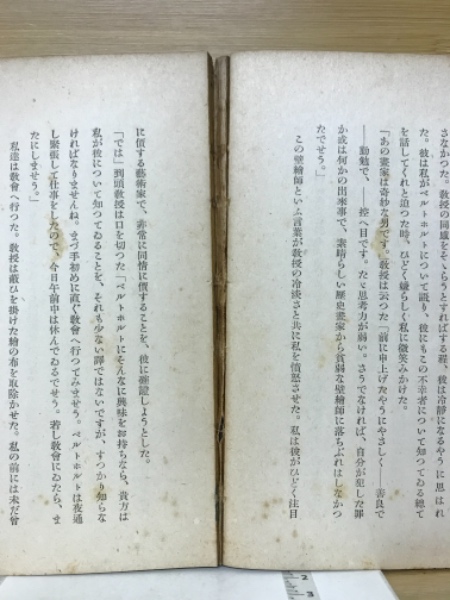 さなかつた。教授の同感をそゝらうとすればする程、彼は冷靜になるやうに思はれ
た。彼は私がベルトホルトについて語り、彼にもこの不幸者について知つてゐる總て
を話してくれと迫つた時、ひどく嫌らしく私に微笑みかけた。
「あの畫家は奇妙な男です。」教授は云つた「前に申上げたやうにやさしく――善良で
――勤勉で、――控へ目です。たゞ思考力が弱い。さうでなければ、自分が犯した罪
か或は何かの出來事で、素晴らしい歷史畫家から貧弱な壁繪師に落ちぶれはしなかつ
たでせう。」
この壁繪師といふ言葉が教授の冷淡さと共に私を憤怒させた。私は彼がひどく注目
に價する藝術家で、非常に同情に價することを、彼に確證しようとした。
「では」到頭教授は口を切つた「ベルトホルトにそんなに興味をお持ちなら、貴方は
私が彼について知つてゐることを、それも少ない譯ではないですが、すつかり知らな
ければなりませんね。まづ手初めに直ぐ教會へ行つてみませう。ベルトホルトは夜通
し緊張して仕事をしたので、今日午前中は休んでゐるでせう。若し教會にゐたら、ま
たにしませう。」
私達は教會へ行つた。教授は蔽ひを掛けた繪の布を取除かせた。私の前には未だ曾
2
3